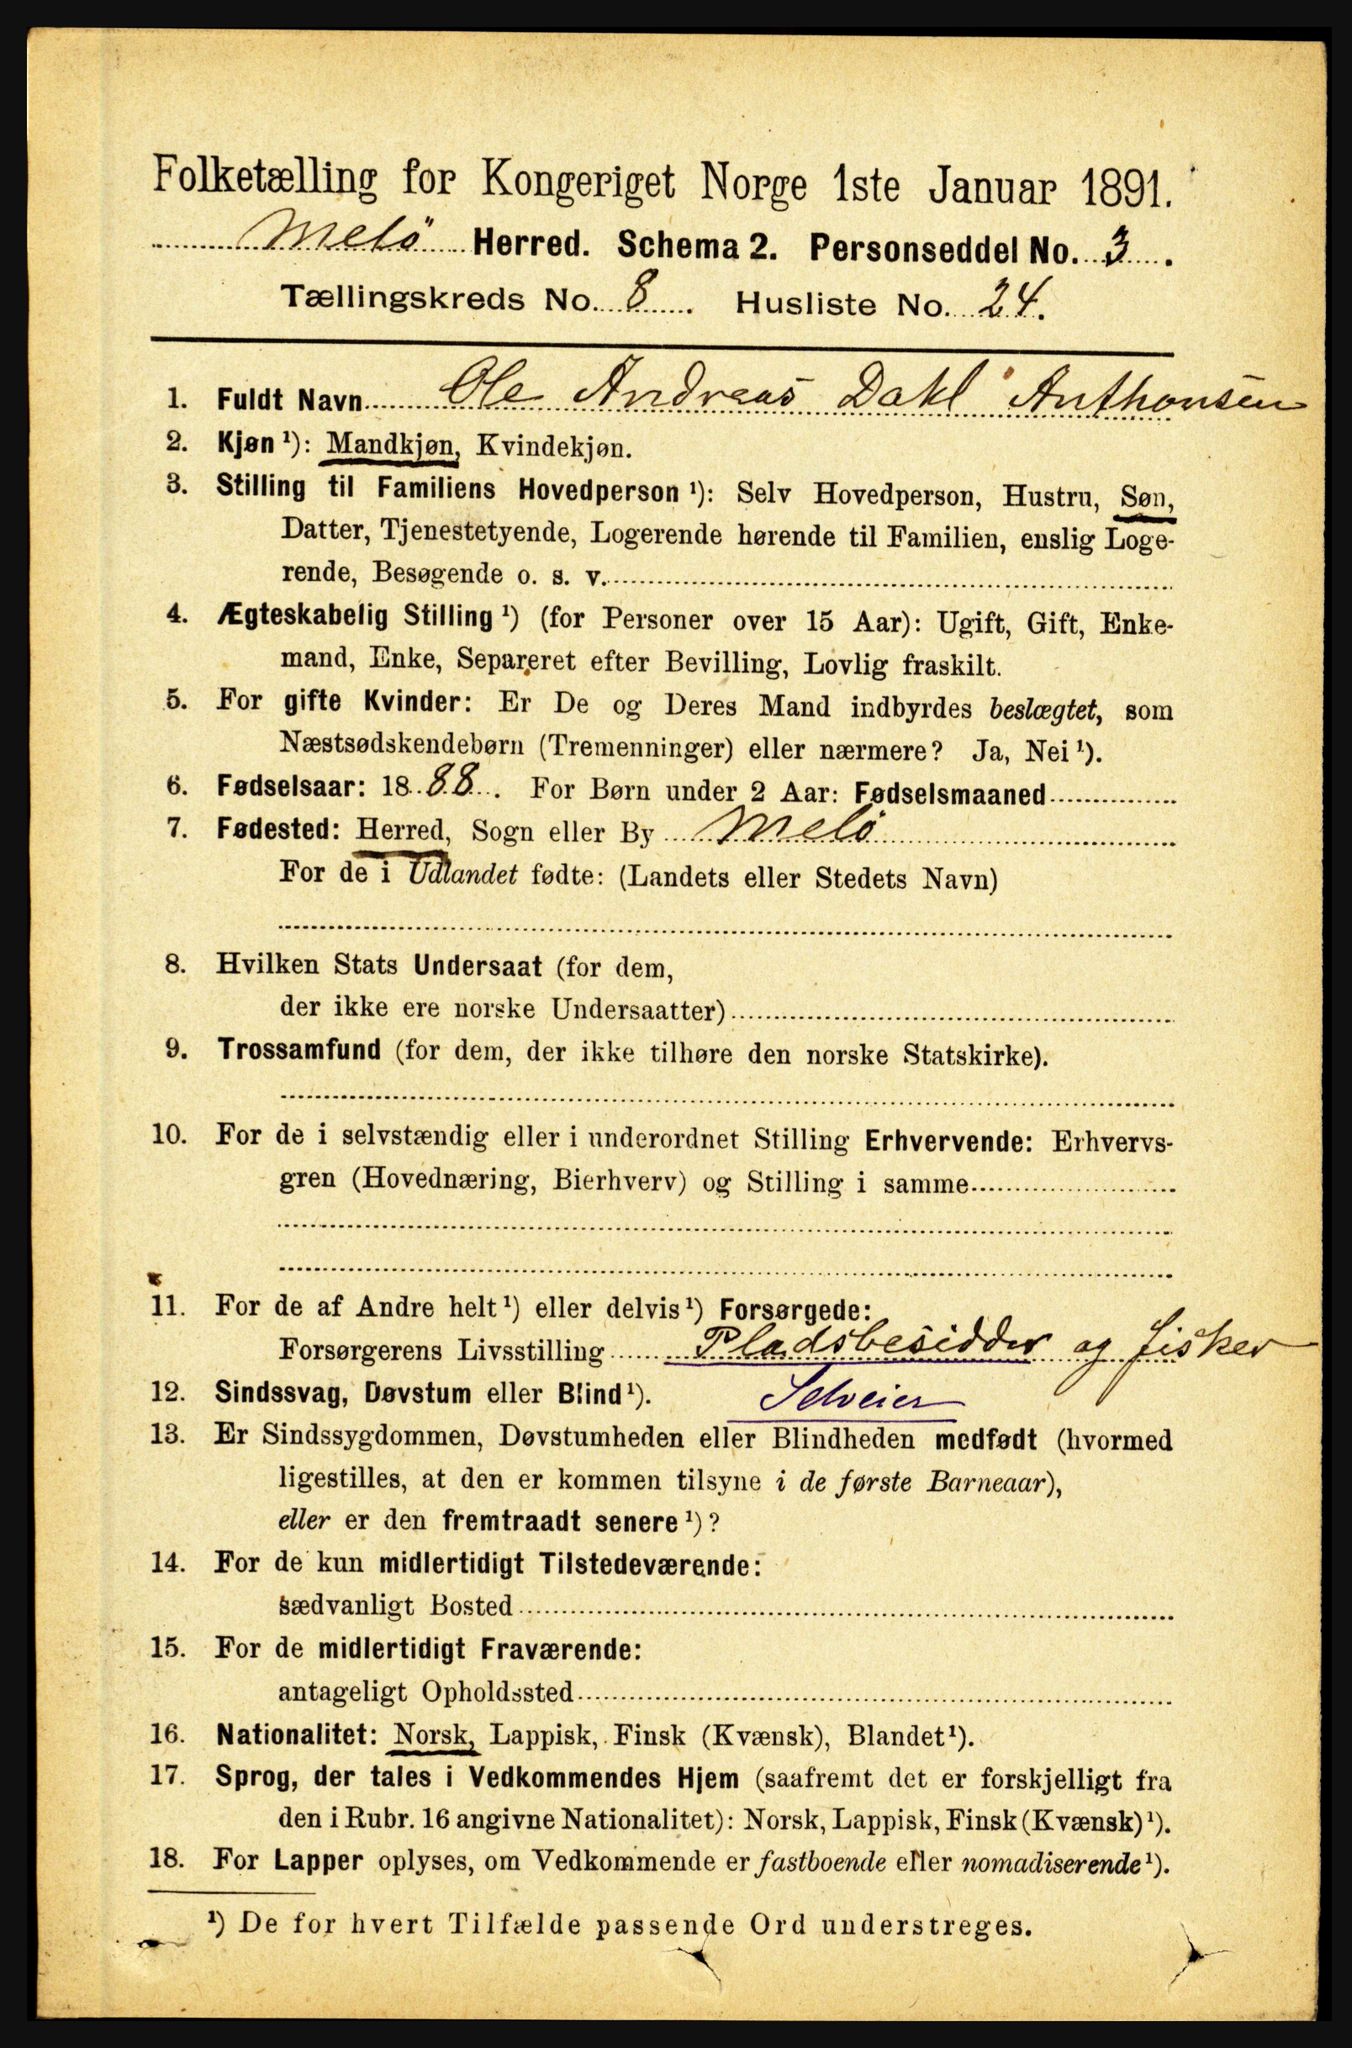 Folketælling for Kongeriget Norge 1ste Januar 1891.
Melö Herred. Schema 2. Personseddel No. 3.
Tællingskreds No. 8. Husliste No. 24.
1. Fuldt Navn Ole Andreas Dahl Anthonsen
2. Kjøn ¹): Mandkjøn, Kvindekjøn.
3. Stilling til Familiens Hovedperson ¹): Selv Hovedperson, Hustru, Søn,
Datter, Tjenestetyende, Logerende hørende til Familien, enslig Loge-
rende, Besøgende o. s. v.
4. Ægteskabelig Stilling ¹) (for Personer over 15 Aar): Ugift, Gift, Enke-
mand, Enke, Separeret efter Bevilling, Lovlig fraskilt.
5. For gifte Kvinder: Er De og Deres Mand indbyrdes beslægtet, som
Næstsødskendebørn (Tremenninger) eller nærmere? Ja, Nei ¹).
6. Fødselsaar: 1888. For Børn under 2 Aar: Fødselsmaaned
7. Fødested: Herred, Sogn eller By Melö
For de i Udlandet fødte: (Landets eller Stedets Navn)
8. Hvilken Stats Undersaat (for dem,
der ikke ere norske Undersaatter)
9. Trossamfund (for dem, der ikke tilhøre den norske Statskirke).
10. For de i selvstændig eller i underordnet Stilling Erhvervende: Erhvervs-
gren (Hovednæring, Bierhverv) og Stilling i samme
11. For de af Andre helt ¹) eller delvis ¹) Forsørgede:
Forsørgerens Livsstilling Pladsbesidder og fisker
12. Sindssvag, Døvstum eller Blind ¹). Selveier
13. Er Sindssygdommen, Døvstumheden eller Blindheden medfødt (hvormed
ligestilles, at den er kommen tilsyne i de første Barneaar),
eller er den fremtraadt senere ¹)?
14. For de kun midlertidigt Tilstedeværende:
sædvanligt Bosted
15. For de midlertidigt Fraværende:
antageligt Opholdssted
16. Nationalitet: Norsk, Lappisk, Finsk (Kvænsk), Blandet ¹).
17. Sprog, der tales i Vedkommendes Hjem (saafremt det er forskjelligt fra
den i Rubr. 16 angivne Nationalitet): Norsk, Lappisk, Finsk (Kvænsk) ¹).
18. For Lapper oplyses, om Vedkommende er fastboende eller nomadiserende ¹).
¹) De for hvert Tilfælde passende Ord understreges.